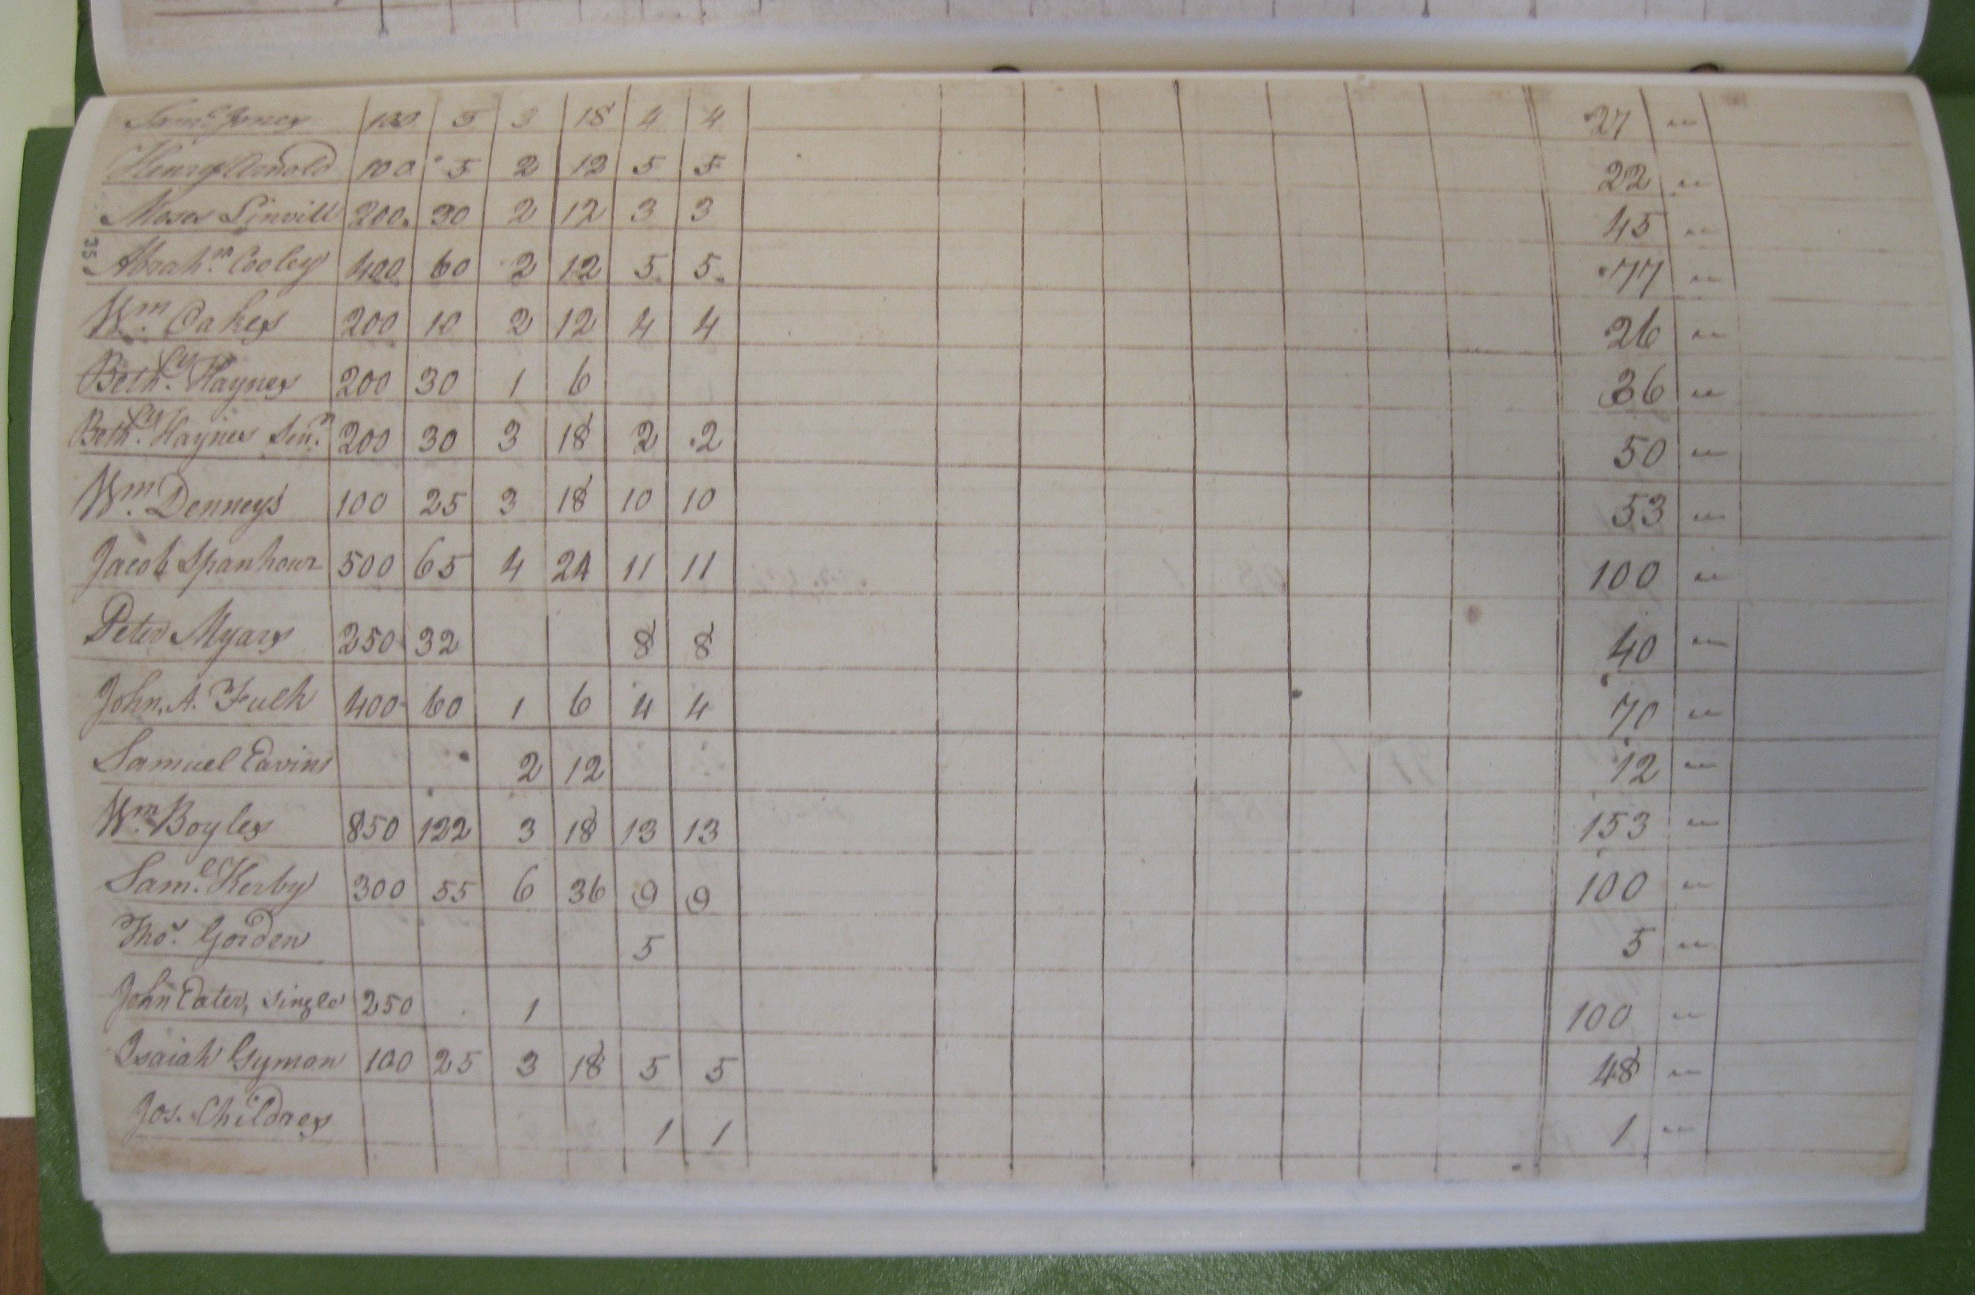 Sam.l Jones 100 5 3 18 4 4 27 "
Henry Arnold 100 5 2 12 5 5 22 "
Moses Linvill 200 30 2 12 3 3 45 "
35 Abrah.m Cooley 400 60 2 12 5 5 77 "
W.m Oakes 200 10 2 12 4 4 26 "
Beth.y Haynes 200 30 1 6 36 "
Beth.y Haynes Sen.r 200 30 3 18 2 2 50 "
W.m Denneys 100 25 3 18 10 10 53 "
Jacob Spanhour 500 65 4 24 11 11 100 "
Peter Myars 250 32 8 8 40 "
John. A. Fulk 400 60 1 6 4 4 70 "
Samuel Eavins 2 12 12 "
W.m Boyles 850 122 3 18 13 13 153 "
Sam.l Kerby 300 55 6 36 9 9 100 "
Tho.s Gorden 5 5 "
John Eater, single 250 1 100 "
Isaiah Gyman 100 25 3 18 5 5 48 "
Jos. Childres 1 1 1 "